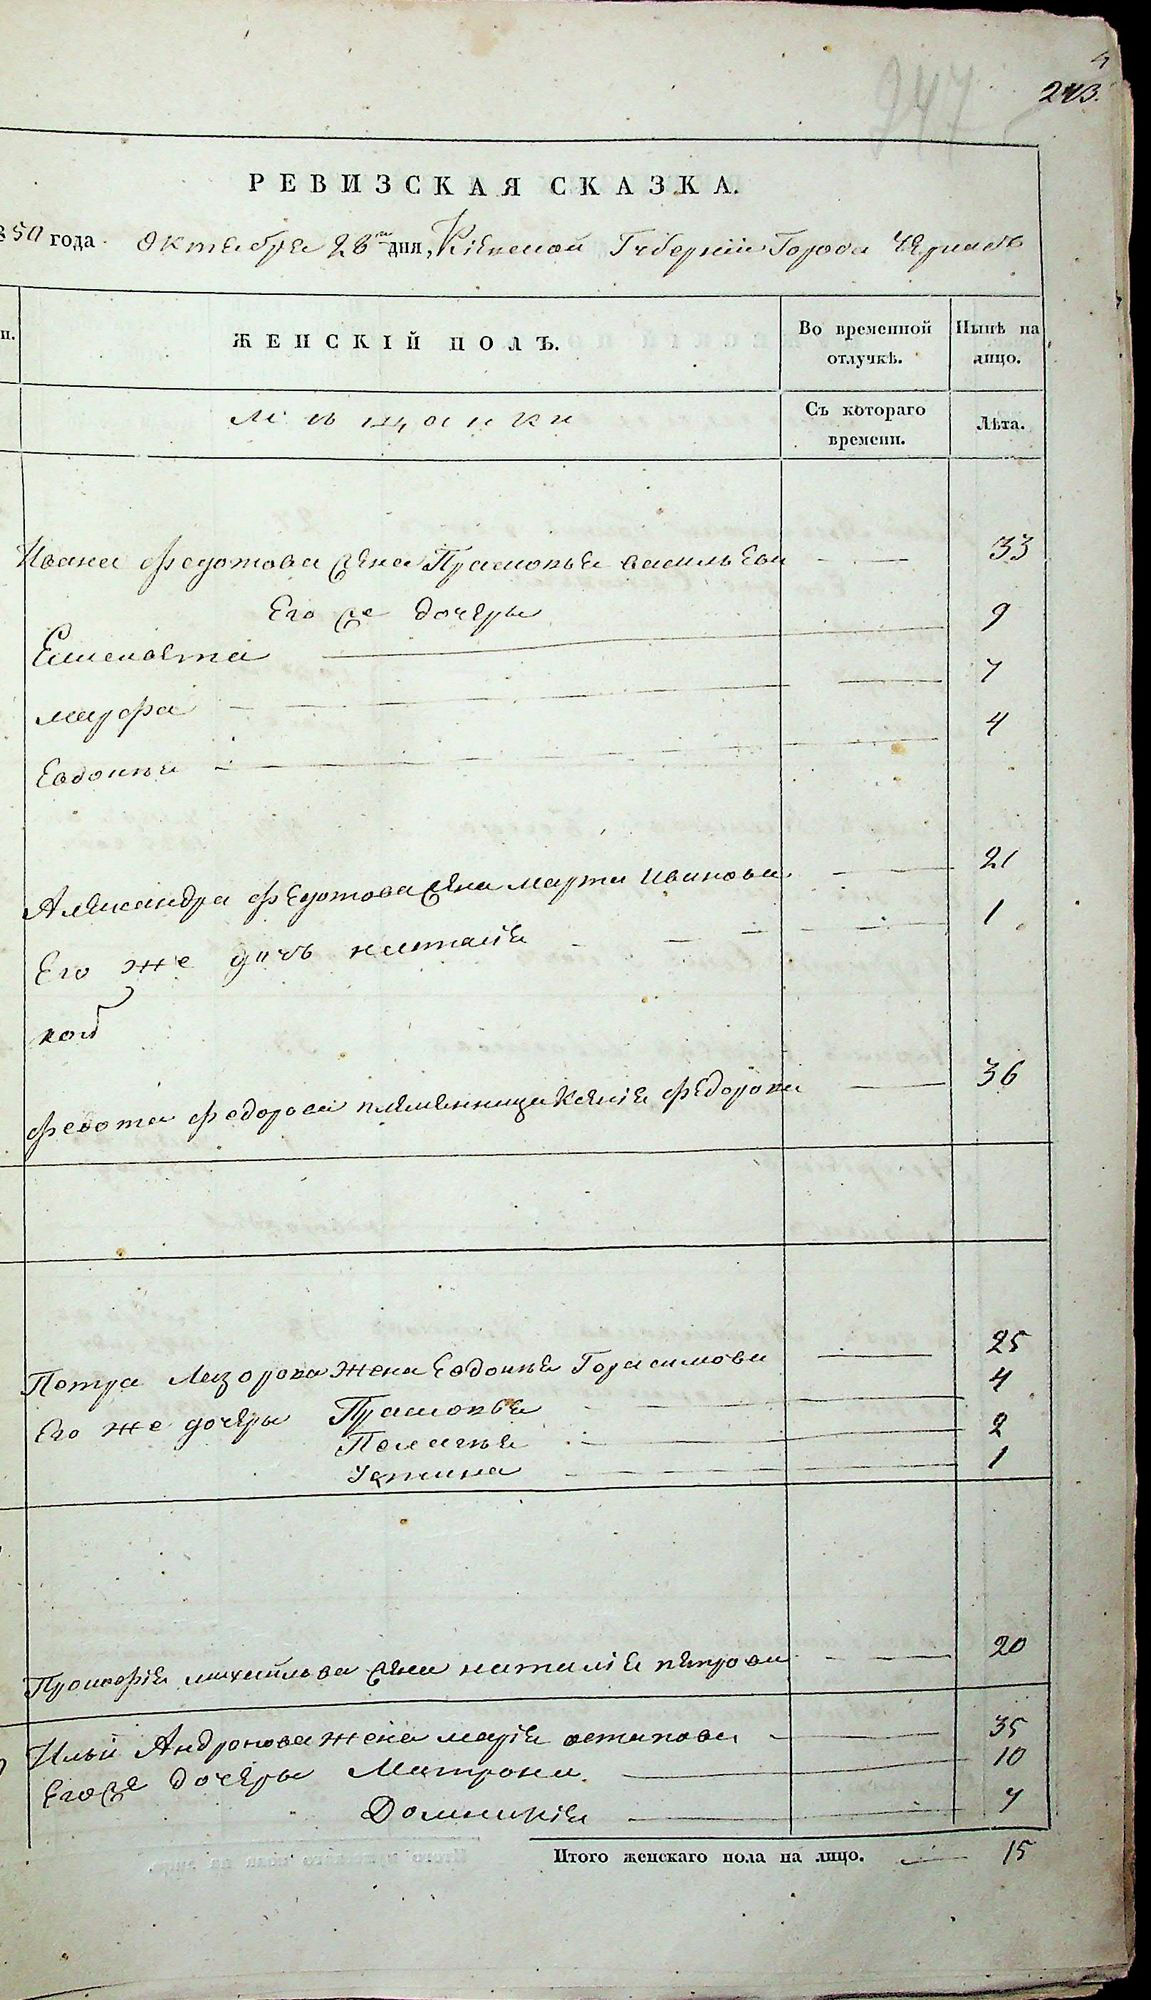 4
247
243.
РЕВИЗСКАЯ СКАЗКА.
850 года Октября 28 дня, Кіевской Губерніи Города Черкасъ
п.
ЖЕНСКІЙ ПОЛЪ.
Во временной отлучкѣ.
Нынѣ на лицо.
мѣщанки
Съ котораго времени.
Лѣта.
Ивана Федотова жена Прасковья васильева 33
Его же дочеры
Елисавета 9
мавра 7
Евдокия 4
Александра Федотова жена марта Иванова 21
Его же дочь наталия 1
Федота Федорова племянница Ксения Федорова 36
Петра Лазорова жена Евдокия Горасимова 25
Его же дочеры Прасковья 4
Пелагия 2
Устина 1
Прокофія михайлова жена наталия петрова 20
Ильи Андронова жена мария остапова 35
Его же дочеры Матрона 10
Домникия 7
Итого женскаго пола на лицо. 15